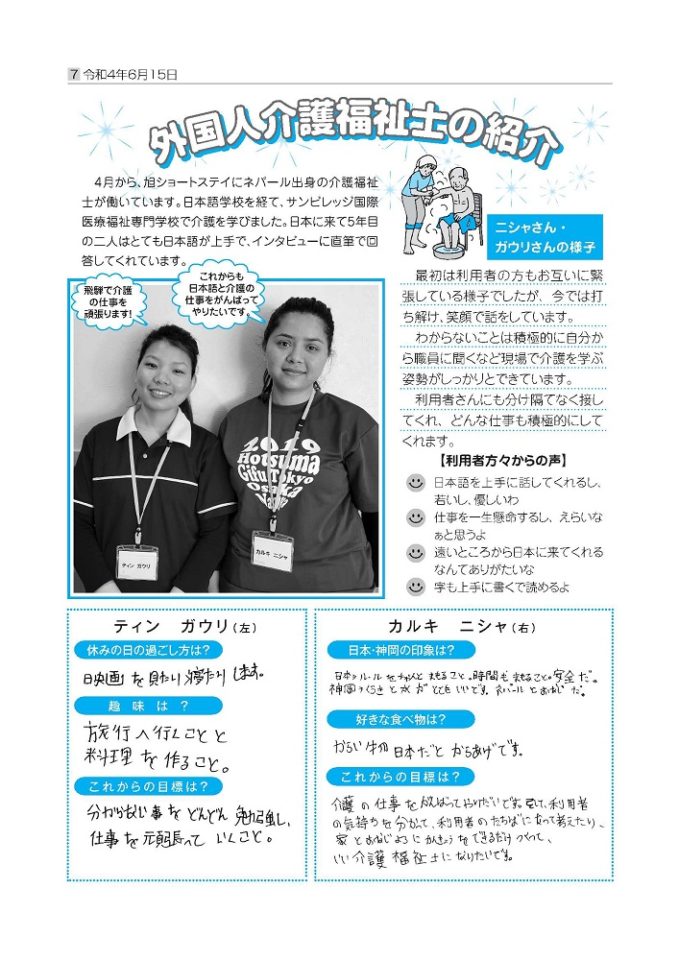 7 令和4年6月15日
外国人介護福祉士の紹介
4月から、旭ショートステイにネパール出身の介護福祉
士が働いています。日本語学校を経て、サンビレッジ国際
医療福祉専門学校で介護を学びました。日本に来て5年目
の二人はとても日本語が上手で、インタビューに直筆で回
答してくれています。
飛騨で介護
の仕事を
頑張ります!
これからも
日本語と介護の
仕事をがんばって
やりたいです。
2019
Hotsuma
Gifu Tokyo
Osaka
ティン ガウリ
カルキ ニシャ
ニシャさん・
ガウリさんの様子
最初は利用者の方もお互いに緊
張している様子でしたが、今では打
ち解け、笑顔で話をしています。
わからないことは積極的に自分か
ら職員に聞くなど現場で介護を学ぶ
姿勢がしっかりとできています。
利用者さんにも分け隔てなく接し
てくれ、どんな仕事も積極的にして
くれます。
【利用者方々からの声】
日本語を上手に話してくれるし、
若いし、優しいわ
仕事を一生懸命するし、えらいな
ぁと思うよ
遠いところから日本に来てくれる
なんてありがたいな
字も上手に書くで読めるよ
ティン ガウリ(左)
休みの日の過ごし方は?
映画を見たり寝たりします。
趣味は?
旅行へ行くことと
料理を作ること。
これからの目標は?
分からない事をどんどん勉強し、
仕事を頑張っていくこと。
カルキ ニシャ(右)
日本・神岡の印象は?
日本はルールをちゃんとまもること。時間もまもること。安全だ。
神岡はくうきと水がとてもいいです。ネパールとおなじだ。
好きな食べ物は?
からい物 日本だとからあげです。
これからの目標は?
介護の仕事をがんばってやりたいです。そして、利用者
の気持ちを分かって、利用者のたちばになって考えたり、
家とおなじようにかんきょうをできるだけつくって、
いい介護福祉士になりたいです。